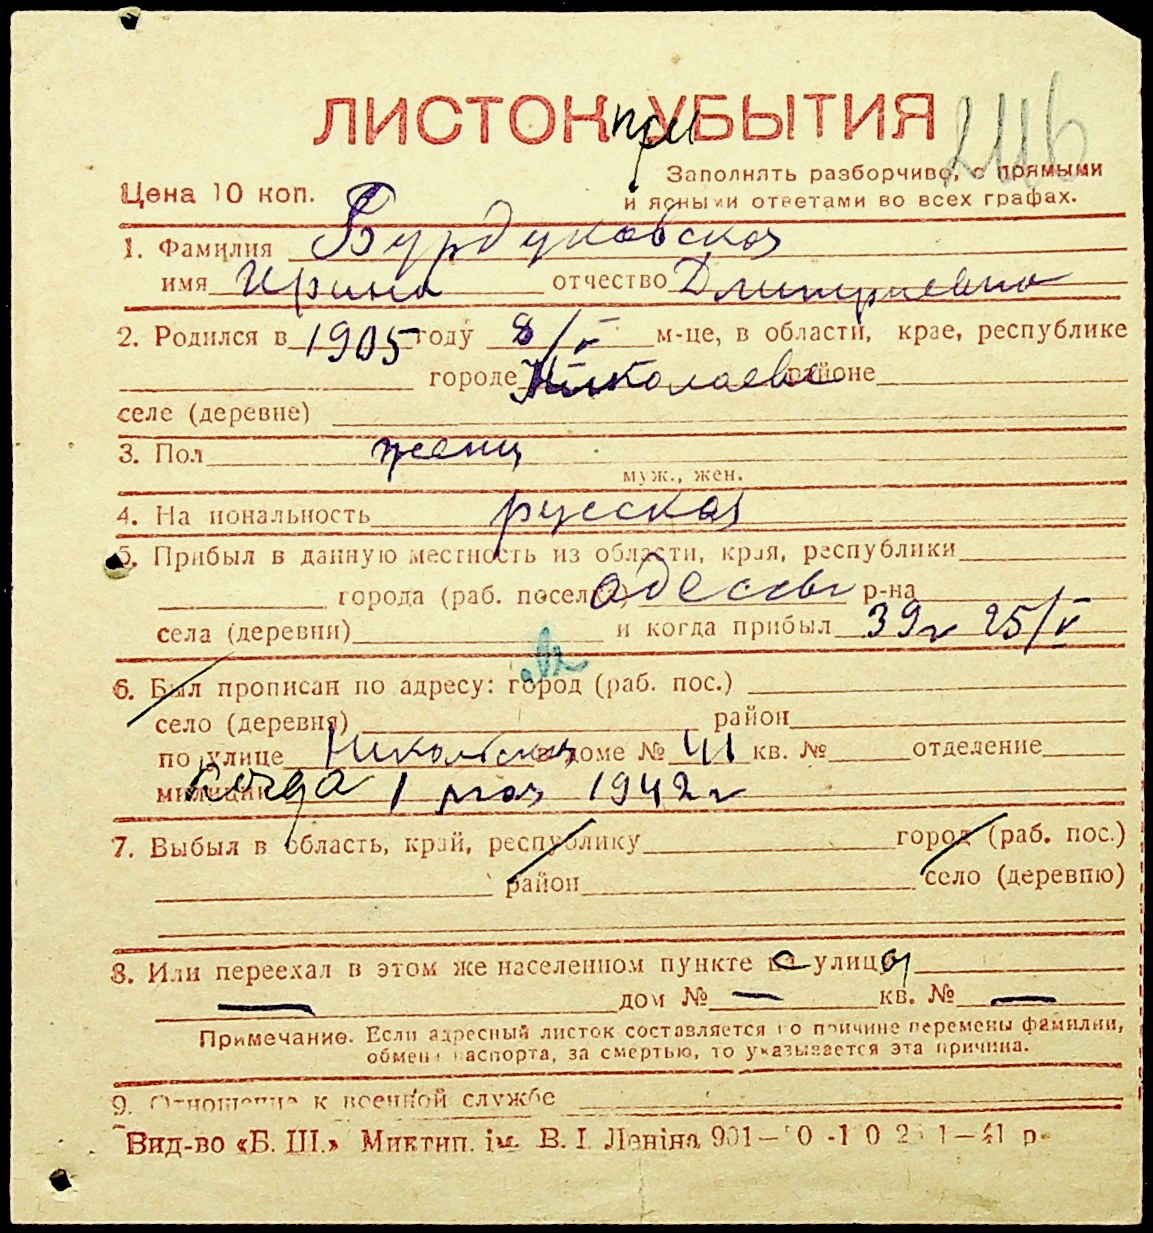 ЛИСТОК УБЫТИЯ
при
2116
Цена 10 коп.
Заполнять разборчиво, с прямыми
и ясными ответами во всех графах.
1. Фамилия Бурдуковская
имя Ирина отчество Дмитриевна
2. Родился в 1905 году 8/V м-це, в области, крае, республике
городе Николаеве районе
селе (деревне)
3. Пол женщ
муж., жен.
4. Национальность русская
5. Прибыл в данную местность из области, края, республики
города (раб. поселка) Одессы р-на
села (деревни) и когда прибыл 39 г 25/V
6. Был прописан по адресу: город (раб. пос.)
село (деревня) район
по улице Никольская в доме № 41 кв. № отделение
милиции когда 1 мая 1942 г
7. Выбыл в область, край, республику город (раб. пос.)
район село (деревню)
8. Или переехал в этом же населенном пункте с улицы
— дом № — кв. № —
Примечание. Если адресный листок составляется по причине перемены фамилии,
обмена паспорта, за смертью, то указывается эта причина.
9. Отношение к военной службе
Вид-во «Б. Ш.» Миктип. ім. В. І. Леніна 901—